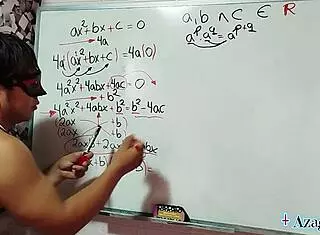 ax² + bx + c = 0
4a
4a(ax² + bx + c) = 4a(0)
4a²x² + 4abx + 4ac = 0
+ b²
4a²x² + 4abx + b² = b² - 4ac
(2ax + b)
(2ax + b)
2axb + 2ax
a, b ∧ c ∈ R
aᵖ·a^q = a^(p+q)
+ Azag